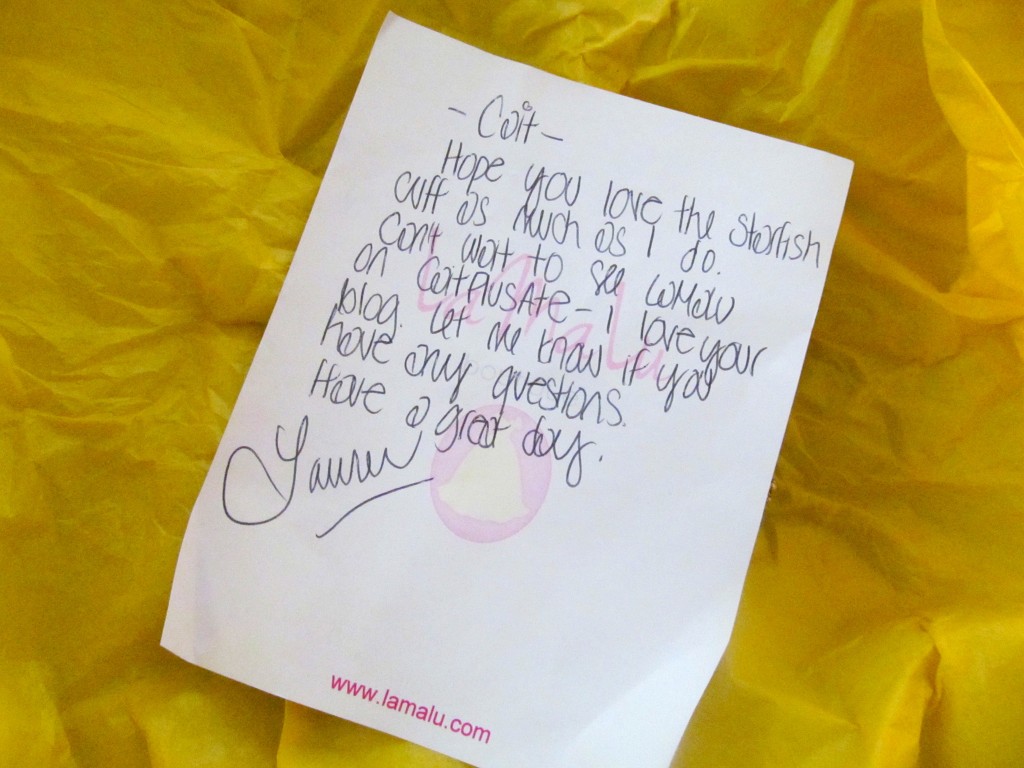 - Cait -
Hope you love the starfish
cuff as much as I do.
Can't wait to see LaMalu
on CaitPlusAte - I love your
blog. Let me know if you
have any questions.
Have a great day.
Lauren
LaMalu
www.lamalu.com